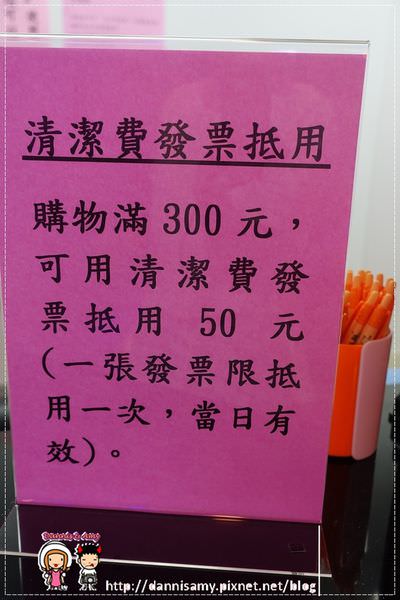 清潔費發票抵用
購物滿 300 元，
可用清潔費發
票抵用 50 元
(一張發票限抵
用一次，當日有
效)。
http://dannisamy.pixnet.net/blog